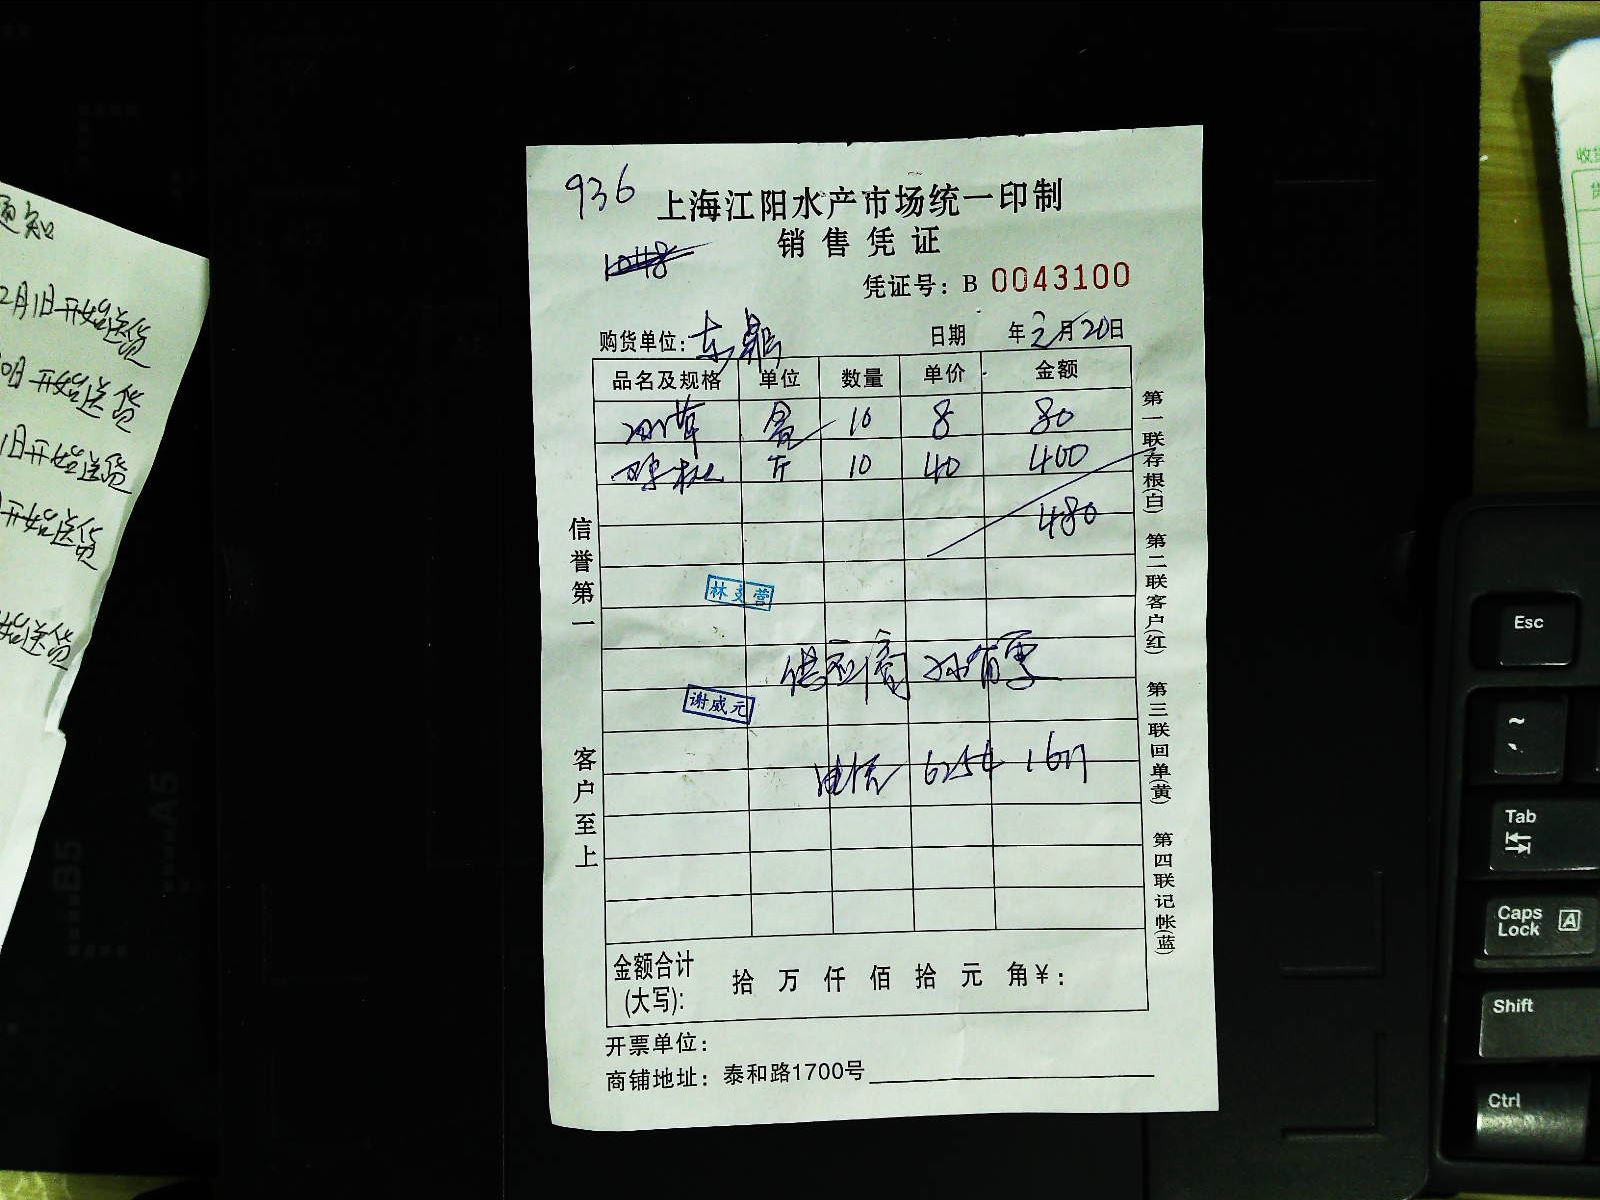 通知
2月1日开始送货
开始送货
1日开始送货
开始送货
始送货
936
上海江阳水产市场统一印制
1048
销售凭证
凭证号：B 0043100
购货单位：东 日期 年 2月20日
品名及规格 单位 数量 单价 金额
盒 10 8 80
斤 10 40 400
480
林 营
供应商 孙
谢威元
电话 6254 1671
金额合计(大写): 拾 万 仟 佰 拾 元 角 ¥：
开票单位：
商铺地址：泰和路1700号
信誉第一 客户至上
第一联存根(白) 第二联客户(红) 第三联回单(黄) 第四联记帐(蓝)
B5
A5
收货
Esc
~
Tab
Caps Lock A
Shift
Ctrl